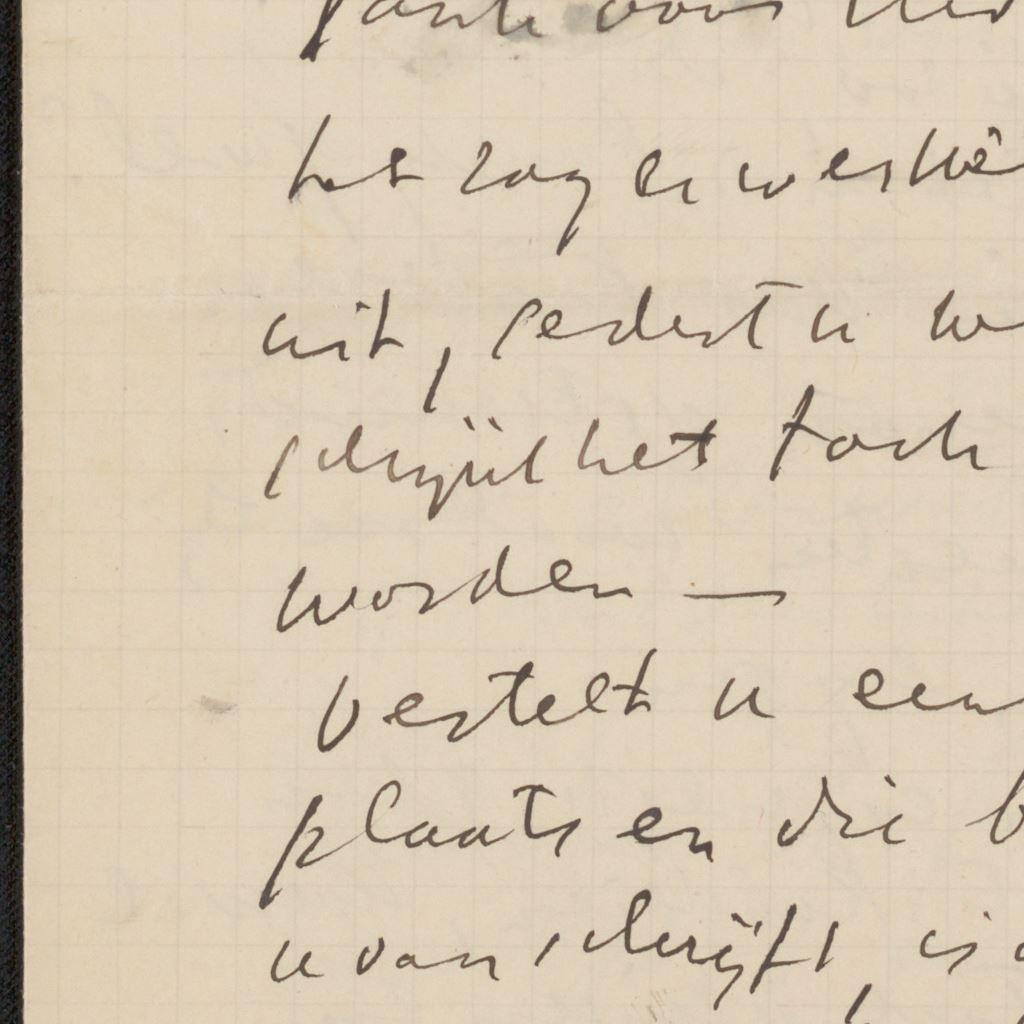 voor
het zag er werke
uit, sedert u we
schijnt het toch
worden —
vertelt u een
plaats en die b
u van schrijft, is